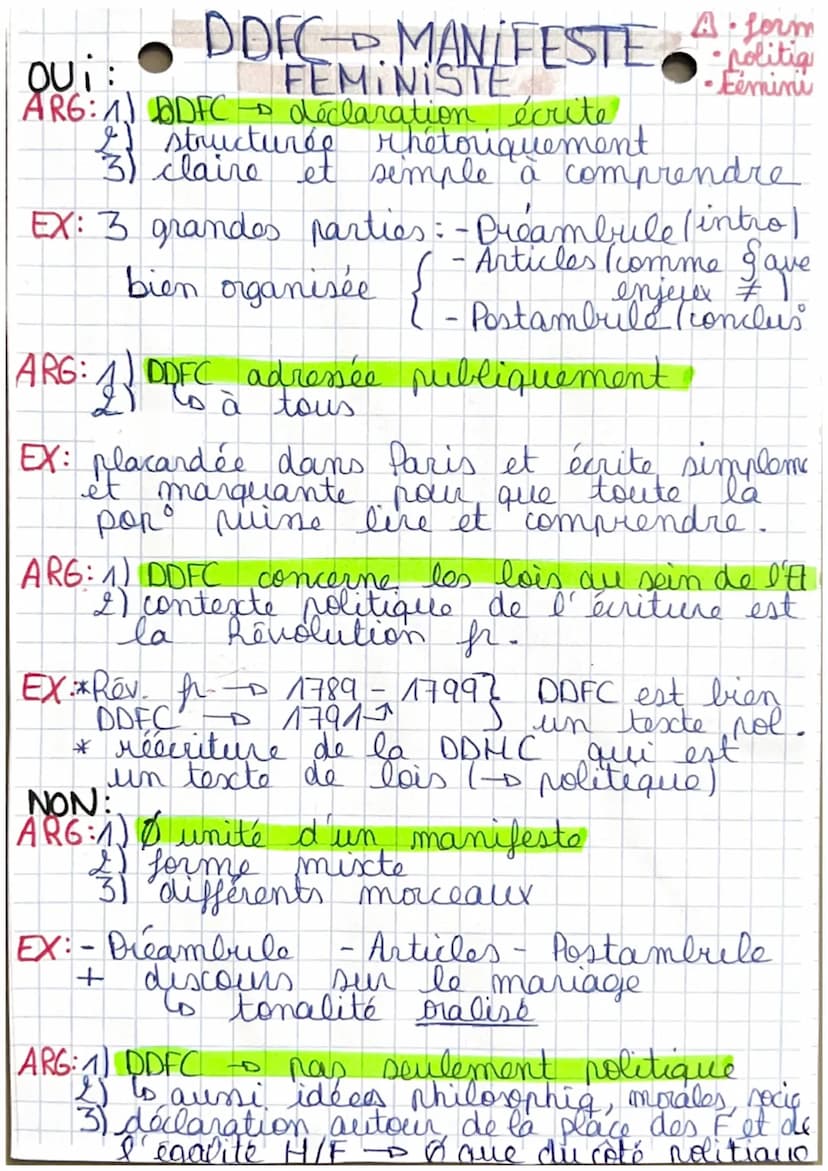 DDFC → MANIFESTE
FÉMINISTE
⚠ • form
• politiq
• fémini
OUI :
ARG: 1) DDFC → déclaration écrite
2) structurée rhétoriquement
3) claire et simple à comprendre
EX: 3 grandes parties: - Préambule (intro)
- Articles (comme § ave
bien organisée { enjeux ≠ )
- Postambule (conclus°
ARG: 1) DDFC adressée publiquement
2) ↳ à tous
EX: placardée dans Paris et écrite simpleme
et marquante pour que toute la
pop° puisse lire et comprendre.
ARG: 1) DDFC concerne les lois au sein de l'Et
2) contexte politique de l'écriture est
la Révolution fr.
EX: * Rév. fr. → 1789 - 1799 } DDFC est bien
DDFC → 1791 ↗ } un texte pol.
* réécriture de la DDHC qui est
un texte de lois (→ politique)
NON:
ARG: 1) Ø unité d'un manifeste
2) forme mixte
3) différents morceaux
EX: - Préambule - Articles - Postambule
+ discours sur le mariage
↳ tonalité oralisé
ARG: 1) DDFC → pas seulement politique
2) ↳ aussi idées philosophiq, morales, socia
3) déclaration autour de la place des F et de
l'égalité H/F → Ø que du côté politique